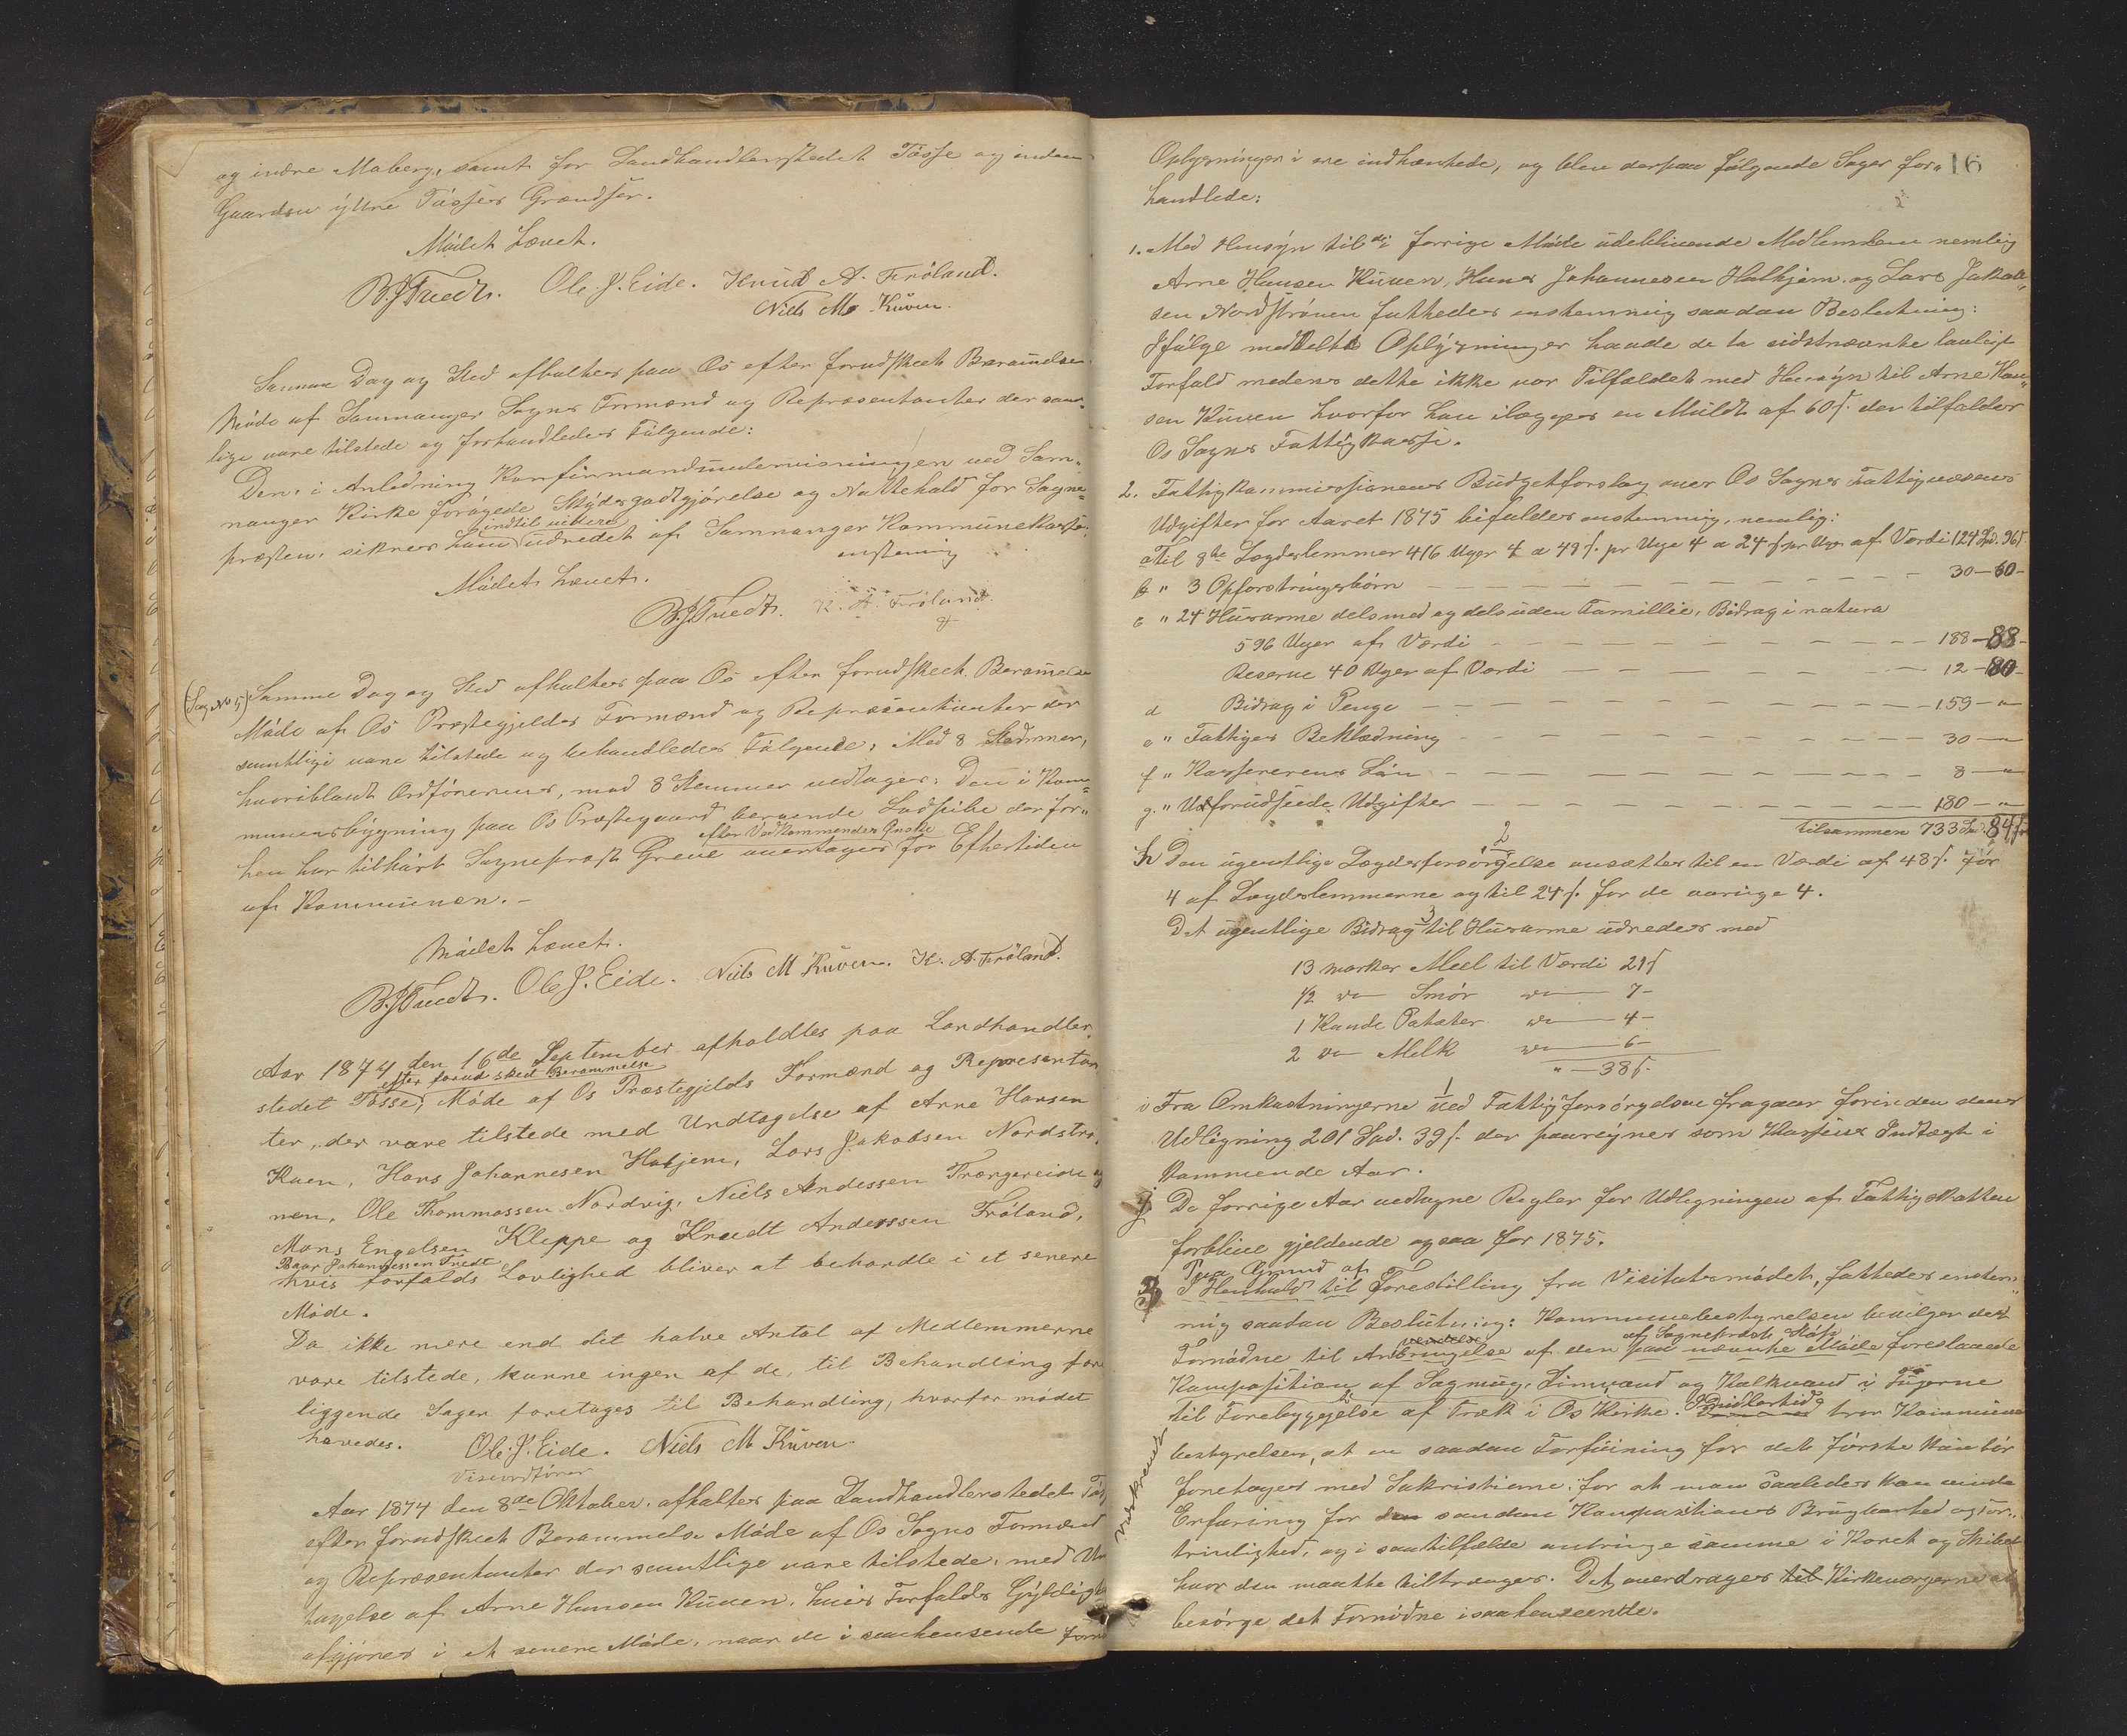 og indre Moberg, samt for Landhandlerstedet Tøsse og inden
Gaarden ÿttre Tøsses Grændser.
Mødet hævet.
B. J Tuedt. Ole. J. Eide. Knud A. Frøland.
Niels M. Kuven.
Samme Dag og Sted afholtes paa Os efter forudskeet Berammelse
Møde af Samnanger Sogns Formænd og Repræsentanter der sam-
lige vare tilstede og forhandledes Følgende:
Den i Anledning Konfirmandundervisningen ved Sam-
nanger Kirke forøgede Skÿdsgodtgjørelse og Nattehold for Sogne-
indtil videre
præsten, sikres ham udredet af Samnanger Kommunekasse.
enstemig
Mødet hævet.
B. J Tuedt. K. A. Frøland.
(Sag No 5) Samme Dag og Sted afholtes paa Os efter forudskeet Berammelse
Møde af Os Præstegjelds Formænd og Repræsentanter der
samtlige vare tilstede og behandledes Følgende: Med 8 Stemmer,
hvoriblandt Ordførerens, mod 8 Stemmer vedtages: Den i Kom-
munensbÿgning paa Os Præstegaard beroende Ladpibe der for-
efter Vedkommendes Ønske
hen har tilhørt Sognepræst Greve overtages for Eftertiden
af Kommunen. -
Mødet hævet.
B. J Tuedt. Ole J. Eide. Niels M Kuven. K. A. Frøland.
Aar 1874 den 16de September afholdtes paa Landhandler-
efter forud skeet Berammelse
stedet Tøsse, Møde af Os Præstegjelds Formænd og Representan
ter, der vare tilstede med Undtagelse af Arne Hansen
Kuen, Hans Johannesen Haljem, Lars Jakobsen Nordstrø-
nen, Ole Thommassen Nordvig, Niels Andessen Trængereide og
Mons Engelsen Kleppe og Knudt Anderssen Frøland,
Baar Johannessen Tuedt
hvis forfalds Lovlighed bliver at behandle i et senere
Møde.
Da ikke mere end det halve Antal af Medlemmerne
vare tilstede, kunne ingen af de, til Behandling fore
liggende Sager foretages til Behandling, hvorfor mødet
hævedes. Ole. J. Eide. Niels M. Kuven.
Viseordfører
Aar 1874 den 8de Oktober, afholtes paa Landhandlerstedet Tøs
efter forudskeet Berammelse Møde af Os Sogns Formænd
og Repræsentanter der samtlige vare tilstede, med Un
tagelse af Arne Hansen Kuven, hvis Forfalds Gÿldighe
afgjøres i et senere Møde, naar de i saahenseende forn
16
Oplysninger i ere indhæntede, og blev derpaa følgende Sager for-
handlede:
1. Med Hensÿn til de i forrige Møde udeblivende Medlemmer nemlig
Arne Hansen Kuven, Hans Johannesen Halhjem, og Lars Jakob-
sen Nordstrønen fattedes enstemmig saadan Beslutning:
Ifølge meddelte Oplÿsninger havde de to sidstnævnte lovligt
Forfald medens dette ikke var Tilfældet med Hensÿn til Arne Han-
sen Kuven hvorfor han ilægges en Mulkt af 60 s. der tilfalder
Os Sogns Fattigkasse.
2. Fattigkommissionens Budgetforslag over Os Sogns Fattigvæsens
Udgifter for Aaret 1875 bifaldes enstemmig, nemlig:
a Til 8te Lægdslemmer 416 Uger 4 a 48 s. pr Uge 4 a 24 s pr Uge af Værdi 124 Spd. 96 s
b " 3 Opfostringsbørn — 30 — 60 -
c " 24 Husarme dels med og dels uden Famillie, Bidrag i natura
596 Uger af Værdi — 188 — 88 -
Reserve 40 Uger af Værdi — 12 — 80 -
d Bidrag i Penge — 159 — "
e " Fattiges Beklædning — 30 — "
f " Kassererens Løn — 8 — "
g. " Uforudseede Udgifter — 180 — "
tilsammen 733 Spd. 84 s
2
h Den ugentlige Lægdsforsørgelse ansættes til en Værdi af 48 s. for
4 af Lægdslemmerne og til 24 s. for de øvrige 4.
3
Det ugentlige Bidrag til Husarme udredes med
13 marker Meel til Værdi 21 s
1/2 do Smør do — 7 -
1 Kande Poteter do — 4 -
2 do Melk do — 6 -
" — 38 s.
1
i Fra Omkostningerne ved Fattigforsørgelsen fragaar forinden dens
Udligning 201 Spd. 39 s. der paaregnes som Kassens Indtægt i
kommende Aar.
j De forrige Aar vedtagne Regler for Udligningen af Fattigskatten
forblive gjeldende ogsaa for 1875.
Paa Grund af
3 I Henhold til Forestilling fra Visitatsmødet, fattedes enstem-
mig saadan Beslutning: Kommunebestyrelsen bevilger det
vendelse af Sognepræst
Fornødne til Anbringelse af den paa nævnte Møde foreslaaede
Komposition af Sagmug, Limvand og Kalkvand i Fugerne
til Forebyggelse af Træk i Os Kirke. Imidlertid tror Kommune
bestyrelsen, at en saadan Forføining for det første kun bør
foretages med Sakristierne, for at man saaledes kan vinde
Erfaring for saadan Kompositions Brugbarhed og For-
trinlighed, og i saa tilfælde anbringe samme i Koret og Skibet
hvor den maatte tiltrænges. Det overdrages til Kirkeværgerne at
besørge det Fornødne i saa henseende.